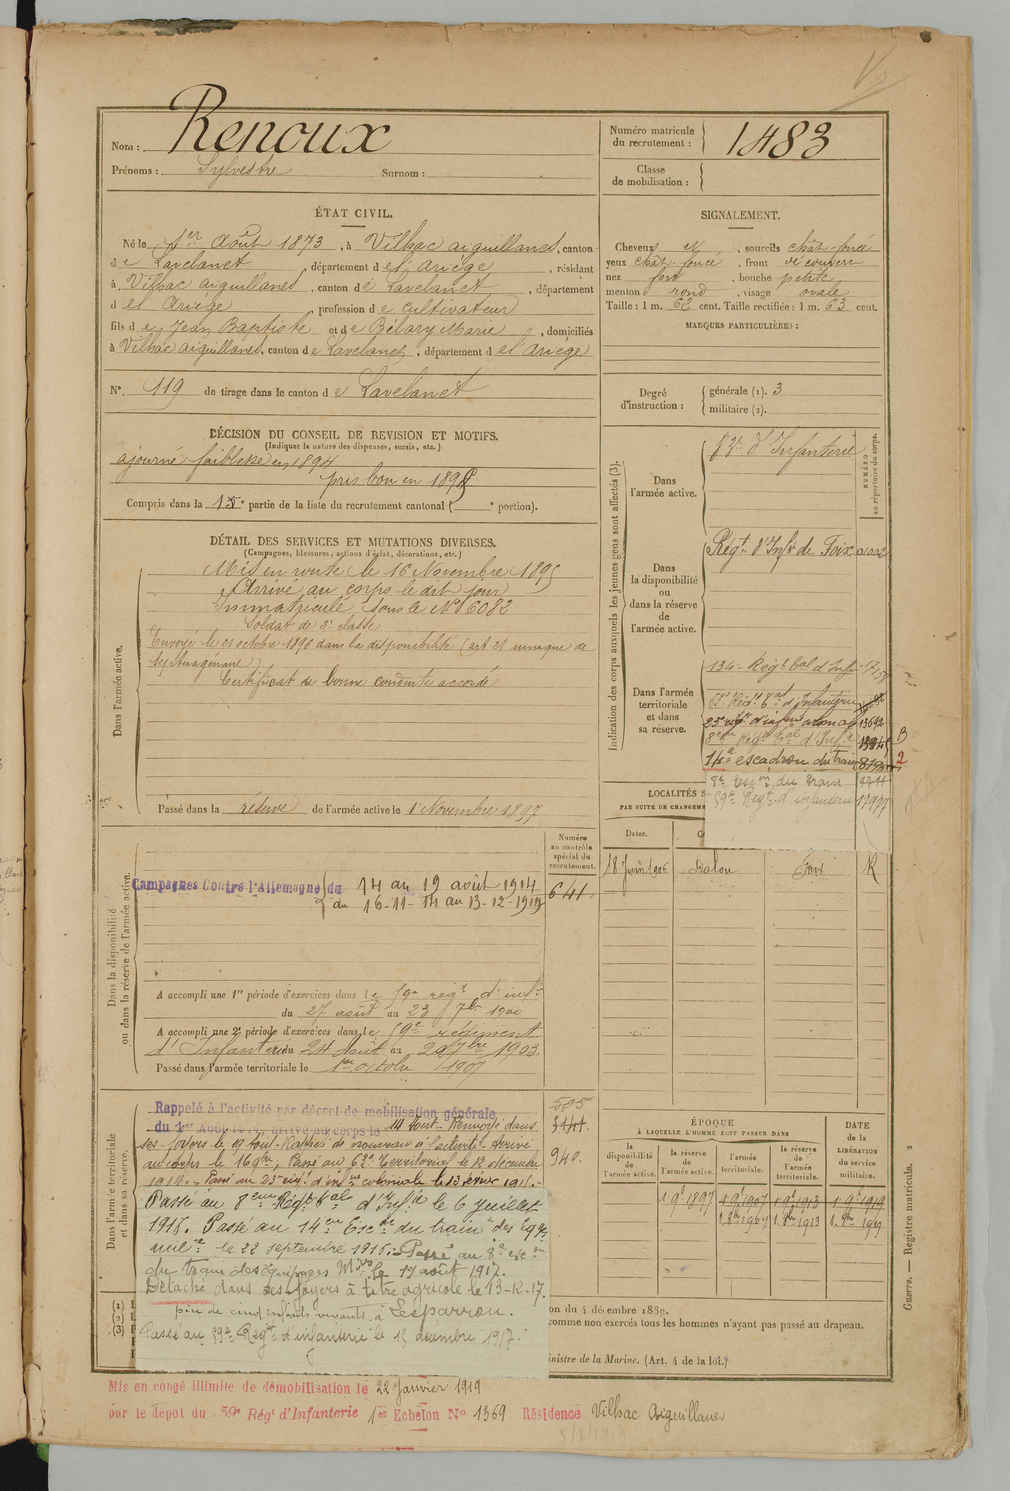 Nom : Renoux
Prénoms : Sylvestre Surnom :
Numéro matricule du recrutement : 1483
Classe de mobilisation :
ÉTAT CIVIL.
Né le 1er Août 1873, à Vilhac aiguillanes, canton
de Lavelanet, département de l'Ariège, résidant
à Vilhac aiguillanes, canton de Lavelanet, département
de l'Ariège, profession de cultivateur
fils de Jean Baptiste et de Bélary Marie, domiciliés
à Vilhac aiguillanes, canton de Lavelanet, département de l'Ariège
N° 119 de tirage dans le canton de Lavelanet
SIGNALEMENT.
Cheveux N, sourcils chât-foncé
yeux chât foncé, front découvert
nez fort, bouche petite
menton rond, visage ovale
Taille : 1 m. 62 cent. Taille rectifiée : 1 m. 63 cent.
MARQUES PARTICULIÈRES :
Degré d'instruction : générale (1). 3
militaire (2).
DÉCISION DU CONSEIL DE REVISION ET MOTIFS.
(Indiquer la nature des dispenses, sursis, etc.)
ajourné faiblesse en 1894
pris bon en 1895
Compris dans la 1e partie de la liste du recrutement cantonal ( e portion).
DÉTAIL DES SERVICES ET MUTATIONS DIVERSES.
(Campagnes, blessures, actions d'éclat, décorations, etc.)
Dans l'armée active.
Mis en route le 16 Novembre 1895
Arrivé au corps le dit jour
Immatriculé sous le N° 6082
Soldat de 2e classe
Envoyé le 21 octobre 1896 dans la disponibilité (art 21 unique de
septuagénaire)
Certificat de bonne conduite accordé
Passé dans la réserve de l'armée active le 1 Novembre 1897
Indication des corps auxquels les jeunes gens sont affectés (3).
NUMÉRO au répertoire du corps.
Dans l'armée active.
83e d'Infanterie
Dans la disponibilité ou dans la réserve de l'armée active.
Régt d'Infie de Foix
Dans l'armée territoriale et dans sa réserve.
134e Régt tal d'Infie
63e Régt tal d'Infanterie
23e régt d'infrie colonale 13692
8eme Régt tal d'Infie
14e escadron du train
8e Escon du train
59e Régt d'infanterie
B
2
LOCALITÉS S
PAR SUITE DE CHANGEM
Dates.
18 Juin 1906 Dalou Foix R
Dans la disponibilité ou dans la réserve de l'armée active.
Numéro au contrôle spécial du recrutement.
641
Campagnes Contre l'Allemagne du 14 au 19 août 1914
du 16-11-14 au 13-12-1917
A accompli une 1re période d'exercices dans le 59e régt d'infie
du 27 août au 23 7bre 1900
A accompli une 2e période d'exercices dans le 59e régiment
d'Infanterie du 24 Août au 20 7bre 1903.
Passé dans l'armée territoriale le 1er octobre 1907
Dans l'armée territoriale et dans sa réserve.
Rappelé à l'activité par décret de mobilisation générale
du 1er Août 1914, arrivé au corps le 14 Août - Renvoyé dans
ses foyers le 19 Août - Rappelé de nouveau à l'activité - Arrivé
au corps le 16 9bre, Passé au 63e Territorial le 12 décembre
1914. - Passé au 23e régt d'infrie coloniale le 13 février 1915. -
Passé au 8eme Régt tal d'Infie le 6 Juillet
1915. Passé au 14eme Escon du train des Eqges
milre le 22 septembre 1916. - Passé au 8e escon
du train des Équipages Mres le 19 août 1917.
Détaché dans ses foyers à titre agricole le 13-12-17.
père de cinq enfants vivants à Lesparrou.
Passé au 59e Régt d'infanterie le 15 décembre 1917.
505
3141
940.
ÉPOQUE
À LAQUELLE L'HOMME DOIT PASSER DANS
la disponibilité de l'armée active.
la réserve de l'armée active.
l'armée territoriale.
la réserve de l'armée territoriale.
DATE de la LIBÉRATION du service militaire.
1 9e 1897 1 9e 1907 1 9e 1913 1 9e 1919
1 8bre 1907 1 8bre 1913 1 8bre 1919
on du 4 décembre 1889.
comme non exercés tous les hommes n'ayant pas passé au drapeau.
inistre de la Marine. (Art. 4 de la loi.)
(1)
(2)
(3)
Guerre. — Registre matricule. 2
Mis en congé illimité de démobilisation le 22 Janvier 1919
par le dépôt du 59e Régt d'Infanterie 1er Echelon N° 1369 Résidence Vilhac Aiguillanes